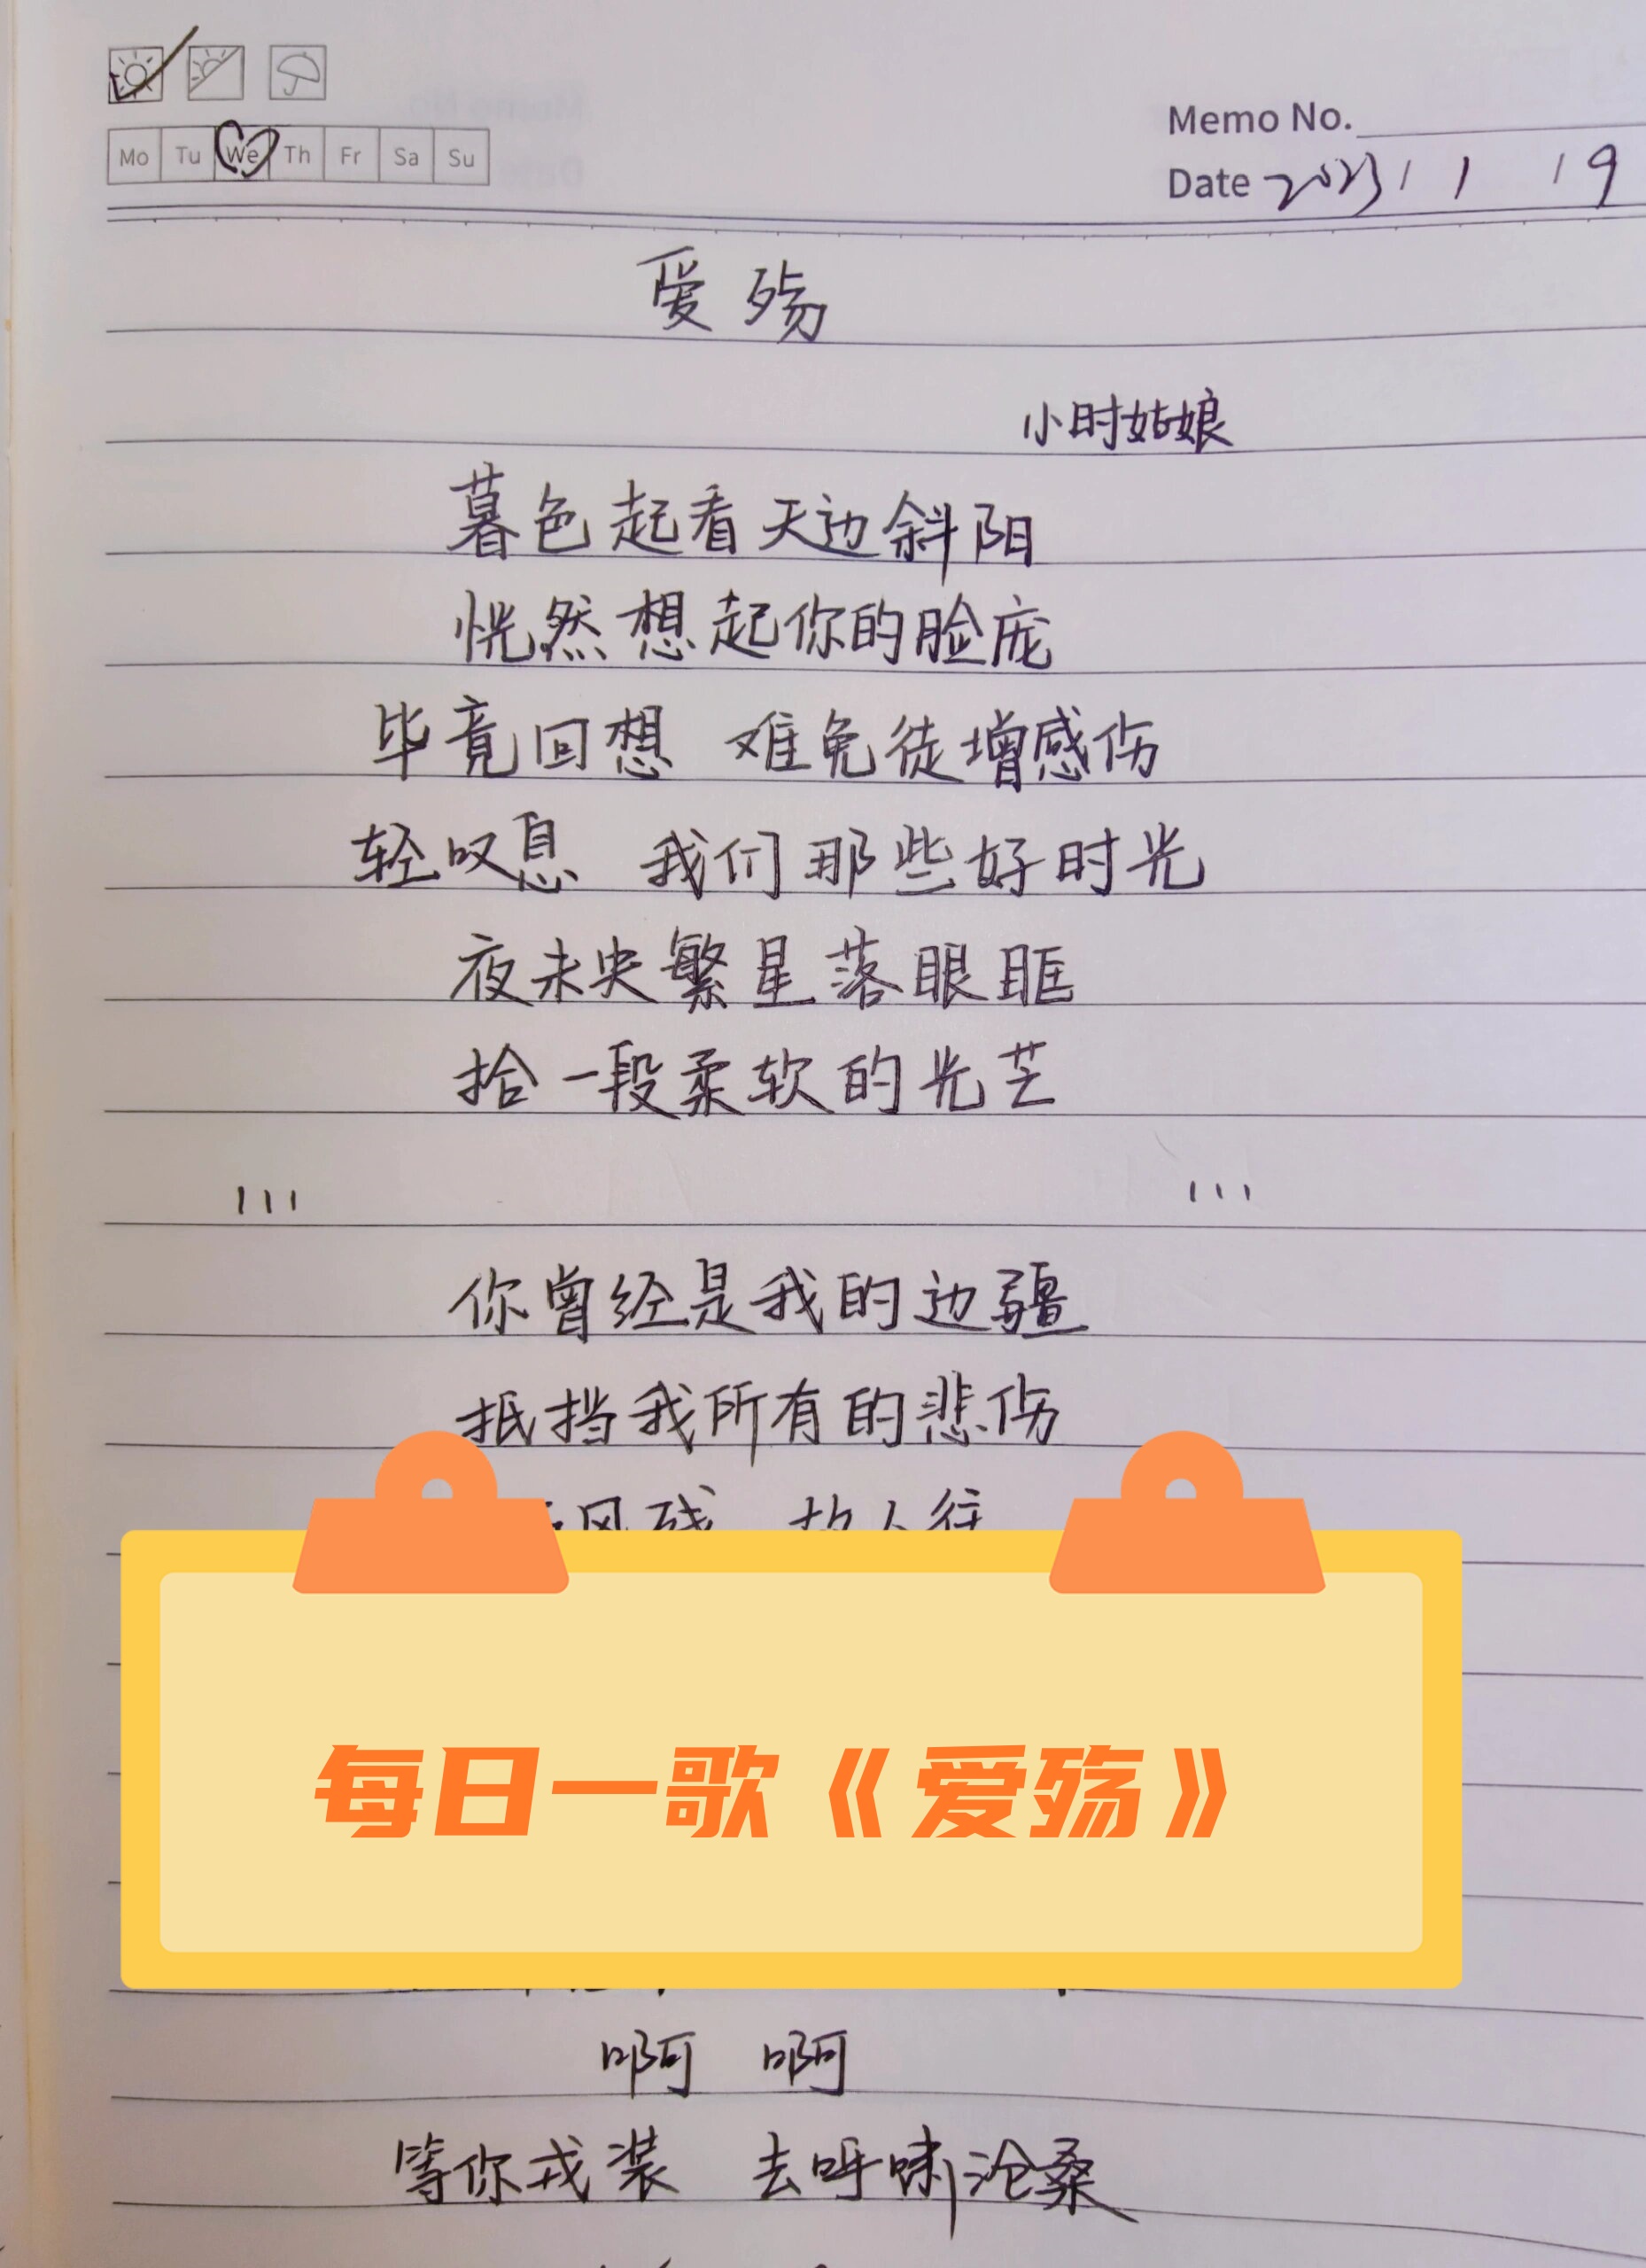 Mo Tu We Th Fr Sa Su
Memo No.
Date 2023 1 19
爱殇
小时姑娘
暮色起看天边斜阳
恍然想起你的脸庞
毕竟回想 难免徒增感伤
轻叹息 我们那些好时光
夜未央繁星落眼眶
拾一段柔软的光芒
你曾经是我的边疆
抵挡我所有的悲伤
风残 故人往
每日一歌《爱殇》
啊 啊
等你戎装 去呼啸沧桑